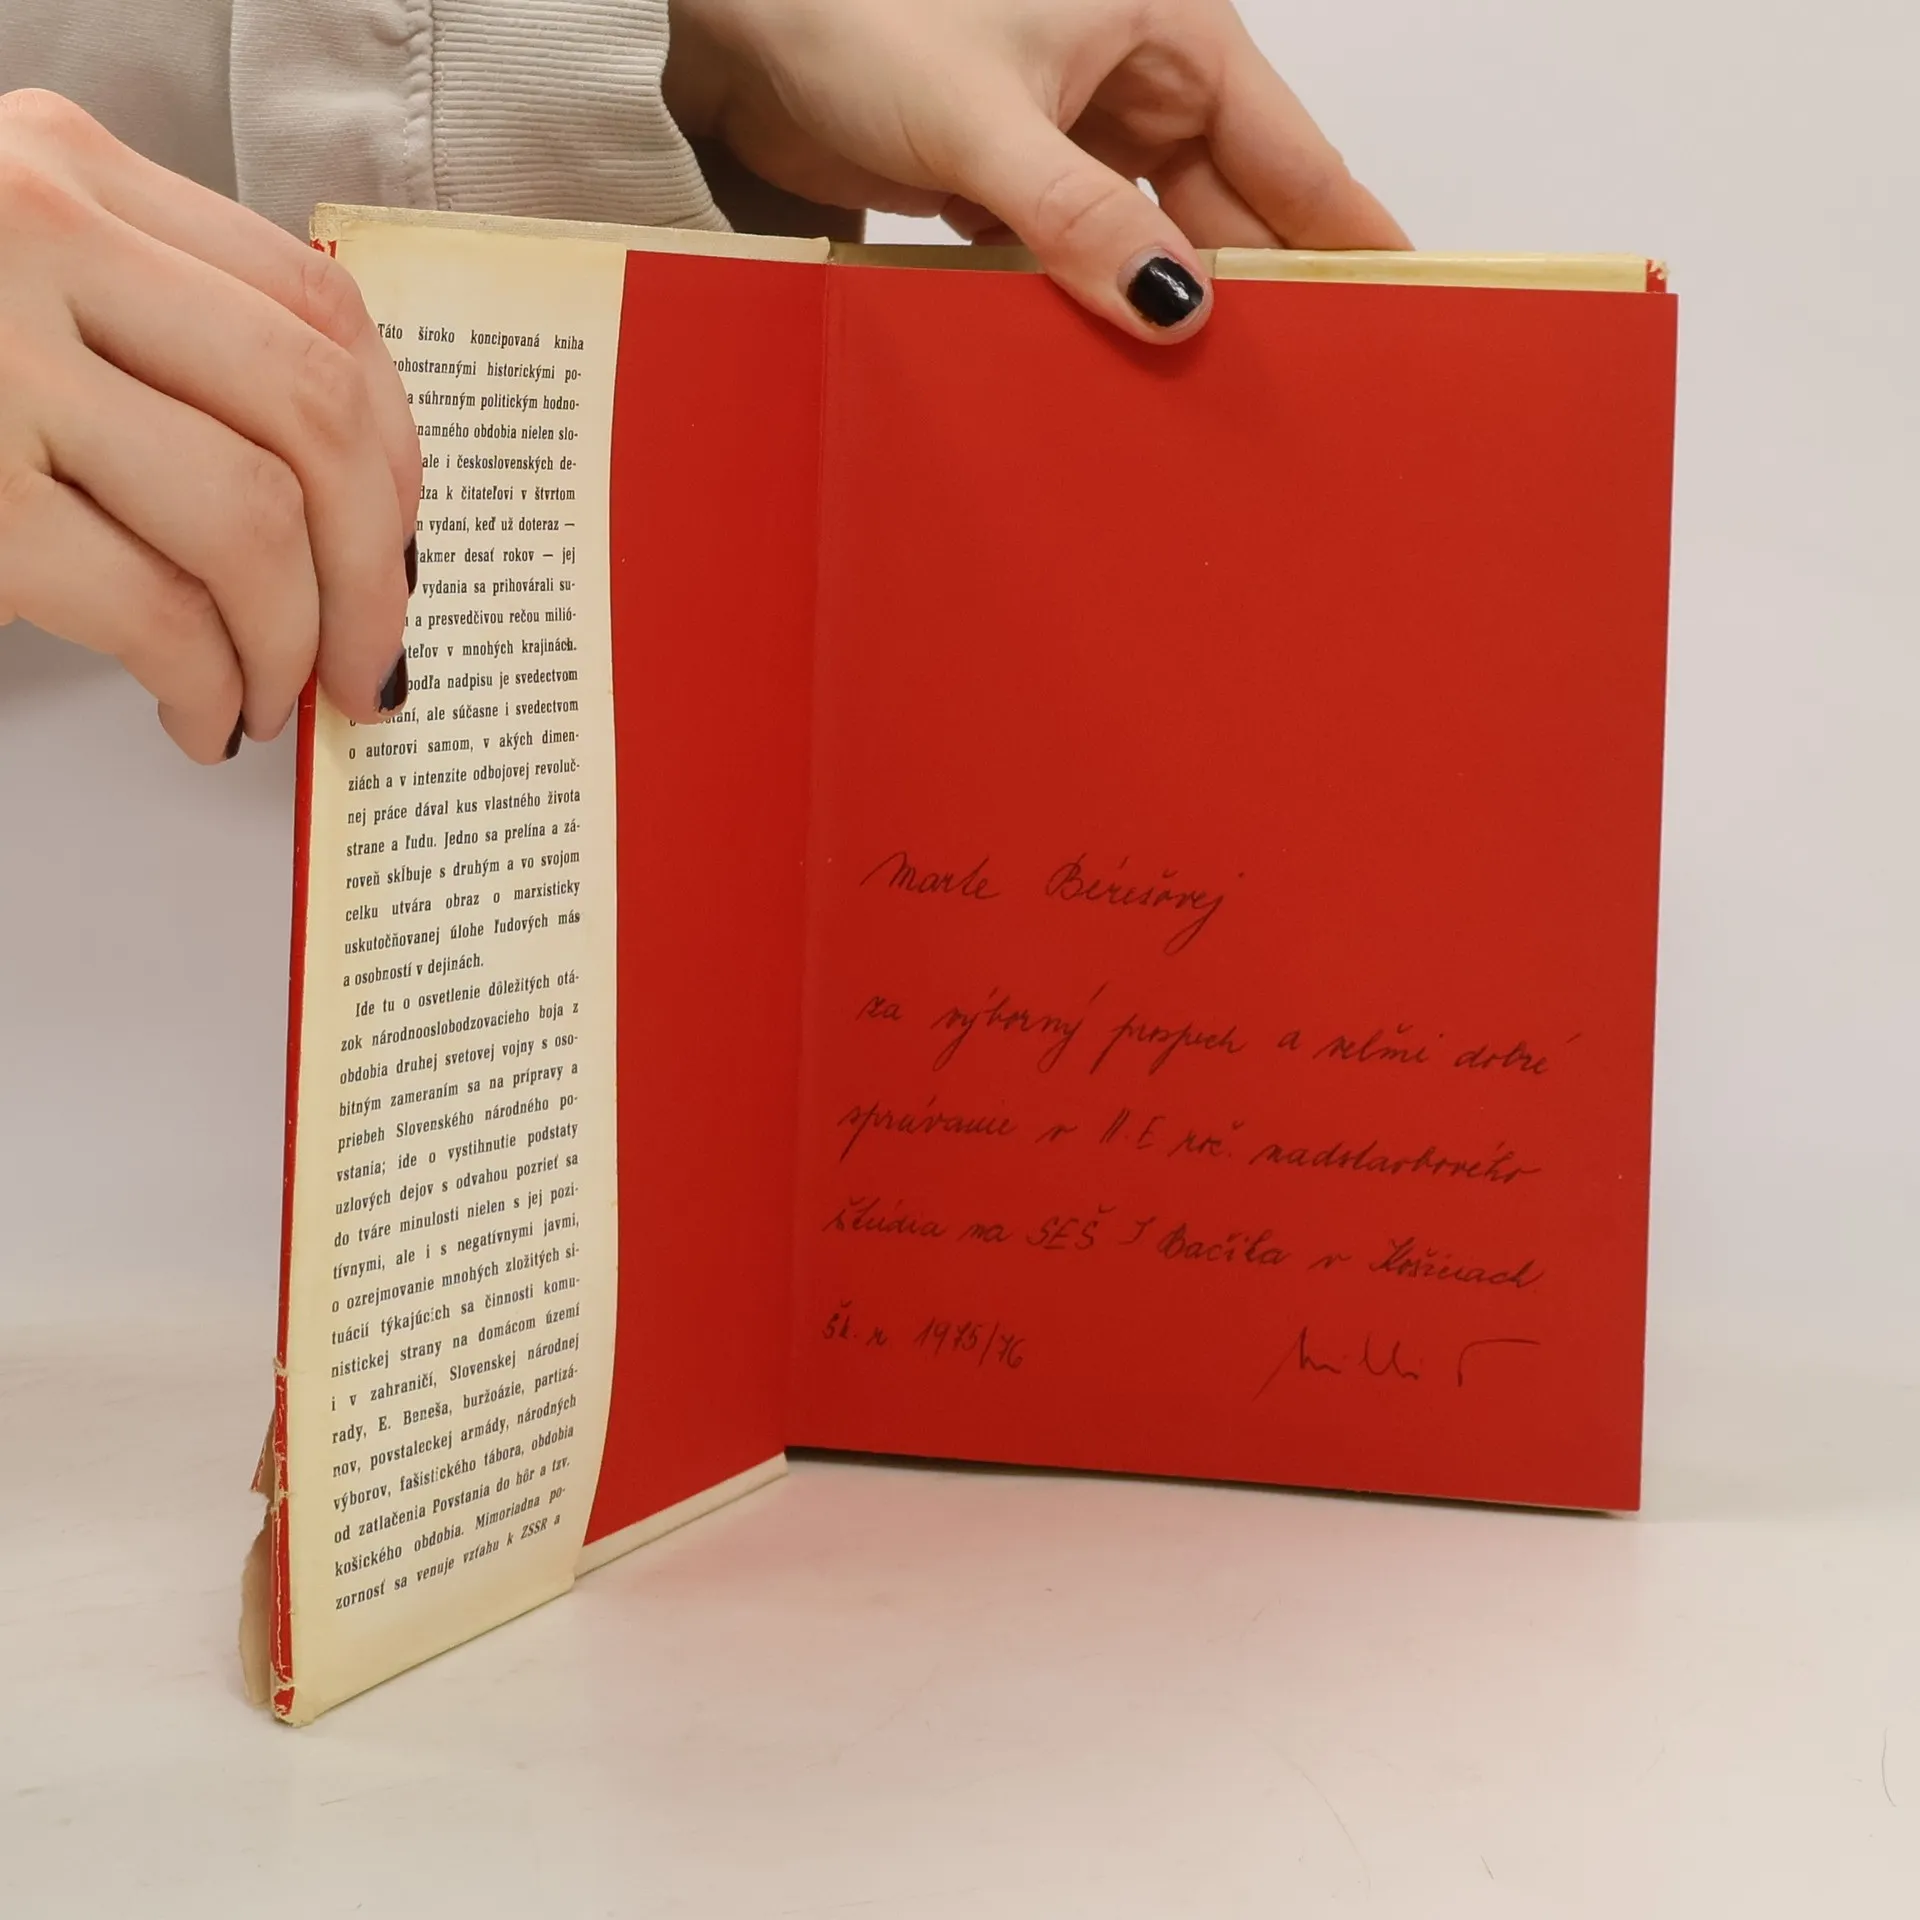 Táto široko koncipovaná kniha
ohostrannými historickými po-
a súhrnným politickým hodno-
namného obdobia nielen slo-
ale i československých de-
dza k čitateľovi v štvrtom
vydaní, keď už doteraz —
akmer desať rokov — jej
vydania sa prihovárali su-
a presvedčivou rečou milió-
teľov v mnohých krajinách.
podľa nadpisu je svedectvom
ale súčasne i svedectvom
o autorovi samom, v akých dimen-
ziách a v intenzite odbojovej revoluč-
nej práce dával kus vlastného života
strane a ľudu. Jedno sa prelína a zá-
roveň skĺbuje s druhým a vo svojom
celku utvára obraz o marxisticky
uskutočňovanej úlohe ľudových más
a osobností v dejinách.
Ide tu o osvetlenie dôležitých otá-
zok národnooslobodzovacieho boja z
obdobia druhej svetovej vojny s oso-
bitným zameraním sa na prípravy a
priebeh Slovenského národného po-
vstania; ide o vystihnutie podstaty
uzlových dejov s odvahou pozrieť sa
do tváre minulosti nielen s jej pozi-
tívnymi, ale i s negatívnymi javmi,
o ozrejmovanie mnohých zložitých si-
tuácií týkajúcich sa činnosti komu-
nistickej strany na domácom území
i v zahraničí, Slovenskej národnej
rady, E. Beneša, buržoázie, partizá-
nov, povstaleckej armády, národných
výborov, fašistického tábora, obdobia
od zatlačenia Povstania do hôr a tzv.
košického obdobia. Mimoriadna po-
zornosť sa venuje vzťahu k ZSSR a
Marte
za výborný prospech a veľmi dobré
správanie v II. E roč. nadstavbového
štúdia na SEŠ v Košiciach
Šk. r 1975/76